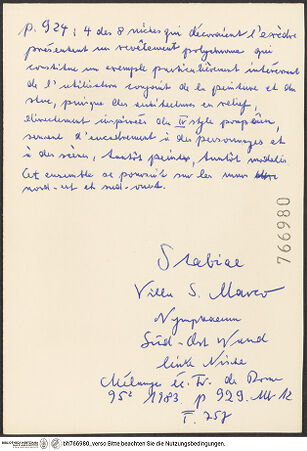 p. 924 : 4 des 8 niches qui décoraient l'exèdre
présentent un revêtement polychrome qui
constitue un exemple particulièrement intéressant
de l'utilisation conjointe de la peinture et du
stuc, puisque des architectures en relief,
directement inspirées du IV style pompéien,
servent d'encadrement à des personnages et
à des scènes, tantôt peintes, tantôt modelés
Cet ensemble se poursuit sur les murs
nord-est et sud-ouest.
766980
Stabiae
Villa S. Marco
Nymphaeum
Süd-Ost Wand
linke Nische
Mélange éc. fr. de Rome
95² 1983 p 929 Abb 12
F. 757
bh766980_verso Bitte beachten Sie die Nutzungsbedingungen.